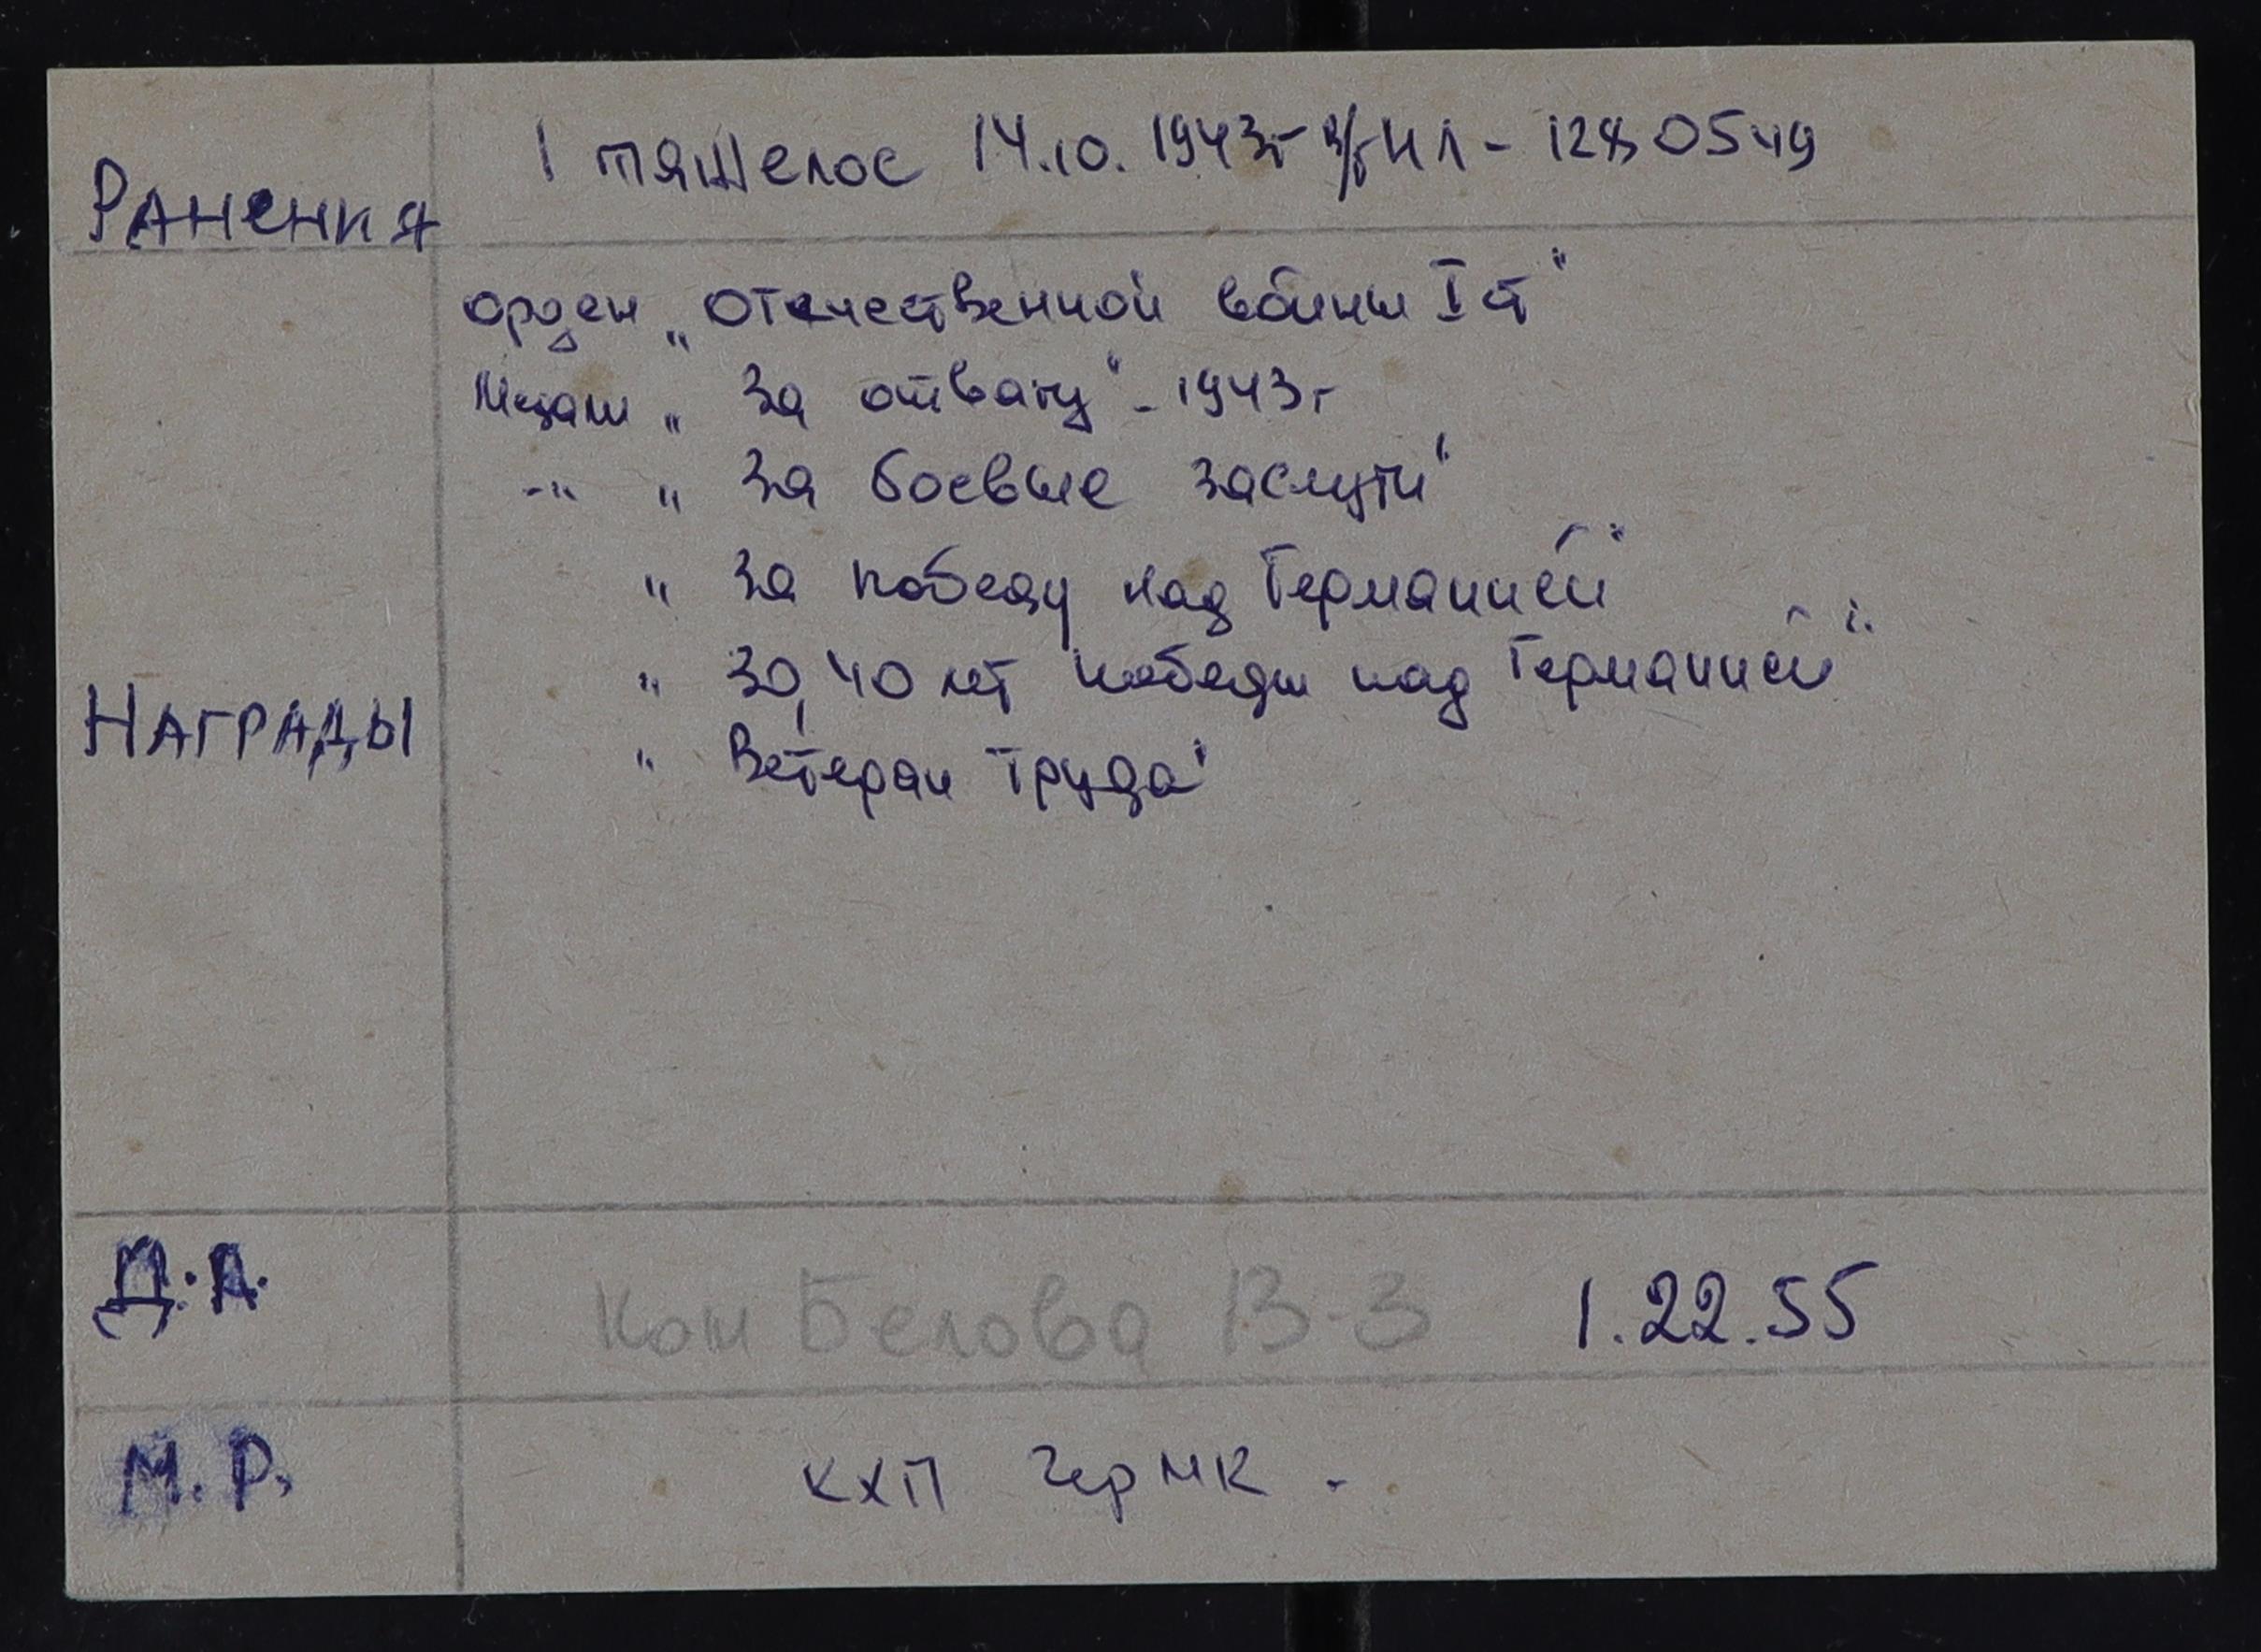 Ранения
1 тяжелое 14.10.1943г в/б НЛ - 1280549
орден „Отечественной войны I ст"
Медали „За отвагу" - 1943г
-"- „За боевые заслуги"
„За победу над Германией"
Награды
„30, 40 лет победы над Германией"
„Ветеран труда"
Д.А.
Ком Белова 13-3 1.22.55
М.Р.
КХП ЧерМК -